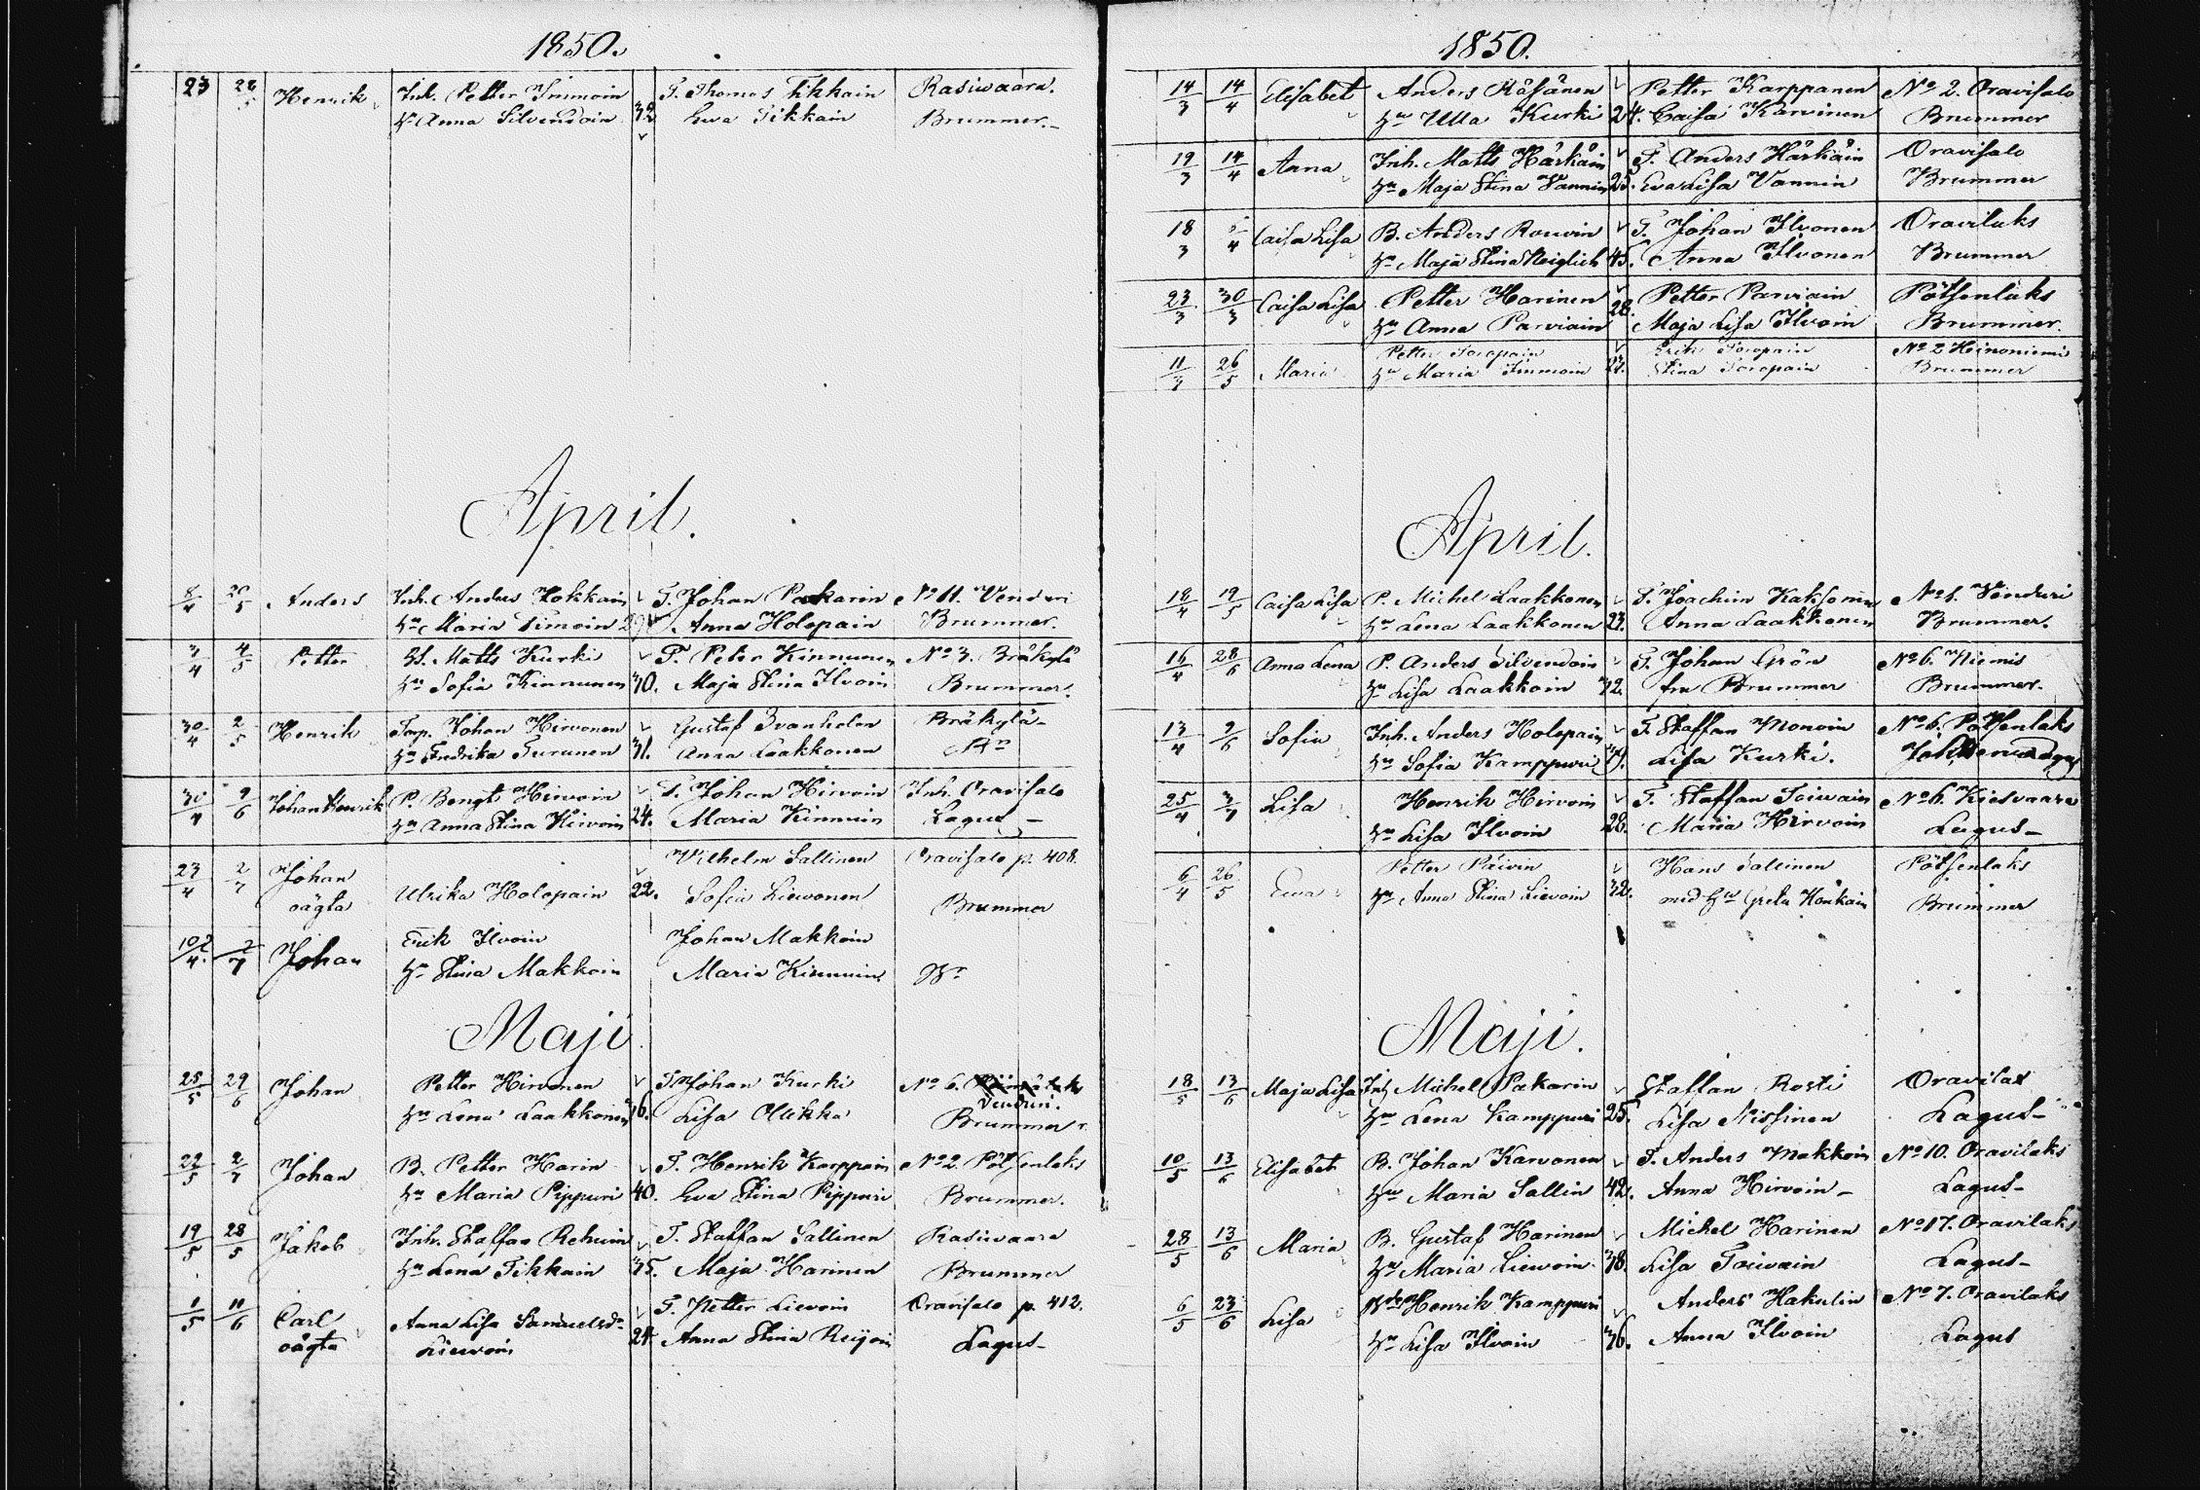 1850.
23 28/5 Henrik Inh. Petter Immoin T. Thomas Tikkain Rasiwaara.
Hu Anna Silvendoin 32 Ewa Tikkain Brummer.
April.
8/4 20/5 Anders Inh. Anders Hokkain T. Johan Pakarin No 11.
Hu Maria Timoin Anna Holopain Brummer.
3/4 4/5 Petter Matts Kurki T. Peter Kinnunen No 3. Bräkylä
Hu Sofia Kinnunen 30. Maja Stina Ilvoin Brummer.
30/4 2/5 Henrik Torp. Johan Hirvonen Gustaf Bräkylä
Hu Fredrika Turunen 31. Anna Laakkonen
30/4 9/6 Johan Henrik P. Bengt Hirvoin T. Johan Hirvoin Inh. Oravisalo
Hu Anna Stina Hirvoin 24. Maria Kinnuin Lagus
23/4 2/7 Johan Wilhelm Sallinen Oravisalo p. 408.
oägta Ulrika Holopain 22. Sofia Lievonen Brummer
2/7 Johan Erik Ilvoin Johan Makkoin
Hu Stina Makkoin Maria Kinnuin
Maji
25/5 29/6 Johan Petter Hirvonen T. Johan Kurki No 6.
Venduri.
Hu Lena Laakkonen 36. Lisa Olikka Brummer
22/5 2/7 Johan B. Petter Harin T. Henrik Karppain No 2. Pötsenlaks
Hu Maria Pippuri 40. Eva Stina Pippuri Brummer.
19/5 28/5 Jakob Inh. Staffan Rehuin T. Staffan Sallinen Rasiwaara
Hu Lena Tikkain 35. Maja Harinen Brummer
1/5 11/6 Carl Anna Lisa Samuelsdr T. Petter Lievoin Oravisalo p. 412.
oägta Lievoin 24. Anna Stina Reijoin Lagus
1850.
14/3 14/4 Elisabet Anders Räsänen Petter Karppanen No 2. Oravisalo
Hu Ulla Kurki 24. Caisa Karvinen Brummer
19/3 14/4 Anna Inh. Matts Härkäin T. Anders Härkäin Oravisalo
Hu Maja Stina Vannin 25. Eva Lisa Vannin Brummer
18/3 /4 Caisa Lisa B. Anders Rouvin T. Johan Ilvonen Oravilaks
Hu Maja Stina 45. Anna Ilvonen Brummer
23/3 30/3 Caisa Lisa Petter Harinen Petter Parviain Pötsenlaks
Hu Anna Parviain 28. Maja Lisa Ilvoin Brummer.
11/3 26/5 Maria Petter Soropain Erik Soropain No 2 Heinoniemi
Hu Maria Immoin Stina Soropain Brummer
April.
18/4 19/5 Caisa Lisa P. Michel Laakkonen T. Joachim Kaksonen No 1. Venduri
Hu Lena Laakkonen 23. Anna Laakkonen Brummer.
16/4 28/6 Anna Lena P. Anders Silvendoin T. Johan Grön No 6. Niemis
Hu Lisa Laakkoin 32. fru Brummer Brummer.
13/4 9/6 Sofia Inh. Anders Holopain T. Staffan Monoin No 6. Pötsenlaks
Hu Sofia Kamppuri 39. Lisa Kurki.
25/4 3/7 Lisa Henrik Hirvoin T. Staffan Toiwain No 6. Kiesvaara
Hu Lisa Ilvoin 28. Maria Hirvoin Lagus
6/4 26/5 Ewa Petter Päivin Hans Sallinen Pötsenlaks
Hu Anna Stina Lievoin 32. med Hu Greta Brummer
Maji.
18/5 13/6 Maja Lisa Inh Michel Pakarin Staffan Rosti Oravilax
Hu Lena Kamppuri 25. Lisa Nissinen Lagus
10/5 13/6 Elisabet B. Johan Karvonen T. Anders Makkoin No 10. Oravilaks
Hu Maria Sallin 42. Anna Hirvoin Lagus
28/5 13/6 Maria B. Gustaf Harinen Michel Harinen No 17. Oravilaks
Hu Maria Lievoin 38. Lisa Toivain Lagus
6/5 23/6 Lisa Henrik Kamppuri Anders Hakulin No 7. Oravilaks
Hu Lisa Ilvoin 36. Anna Ilvoin Lagus